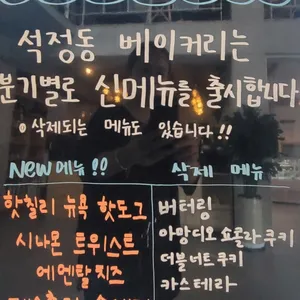 석정동 베이커리는
분기별로 신메뉴를 출시합니다
• 삭제되는 메뉴도 있습니다!!
New 메뉴!!
핫칠리 뉴욕 핫도그
시나몬 트위스트
에멘탈 치즈
삭제 메뉴
버터링
아망디오 쇼콜라 쿠키
더블 너트 쿠키
카스테라